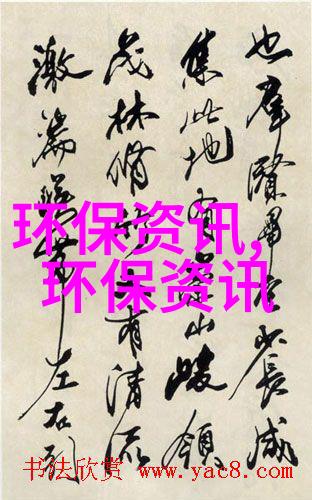 也羣賢畢至少長咸
集此地有崇山峻領
茂林脩竹又有清流
激湍暎帶左右引
环保资讯,
环保资讯
书法欣赏 www.yac8.com